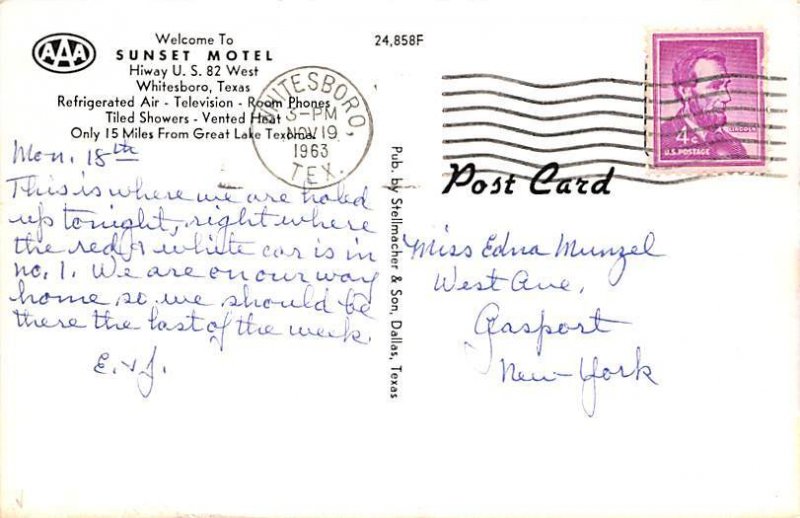 AAA
Welcome To
SUNSET MOTEL
Hiway U. S. 82 West
Whitesboro, Texas
Refrigerated Air - Television - Room Phones
Tiled Showers - Vented Heat
Only 15 Miles From Great Lake Texhoma
24,858F
WHITESBORO,
3-PM
NOV 19
1963
TEX.
4¢
LINCOLN
U.S. POSTAGE
Post Card
Mon. 18th
This is where we are holed
up tonight, right where
the red & white car is in
no. 1. We are on our way
home so we should be
there the last of the week.
E. & J.
Pub. by Stellmacher & Son, Dallas, Texas
Miss Edna Munzel
West Ave,
Gasport
New-York